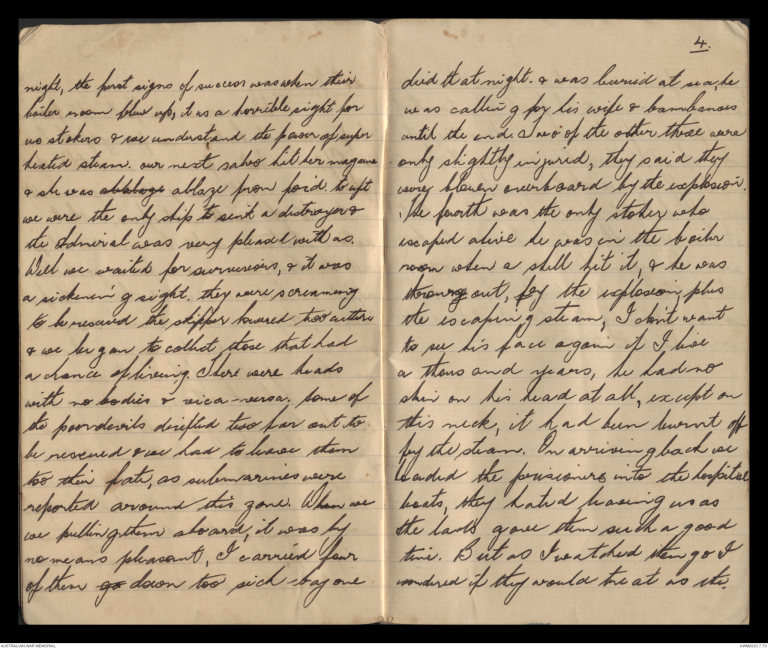 night, the first signs of success was when their
boiler room blew up, it was a horrible sight for
us stokers & we understand the power of super
heated steam. our next salvo hit her magazine
& she was ablaze from for'd. to aft
we were the only ship to sink a distroyer &
the Admiral was very pleased with us.
Well we waited for survivors, & it was
a sickening sight. they were screaming
to be rescued the skipper lowered two cutters
& we began to collect those that had
a chance of liveing. There were heads
with no bodies & vica-versa. some of
the poor devils drifted two far out to
be rescued & we had to leave them
too their fate, as submarines were
reported arround this zone. When we
we pulling them aboard, it was by
no means pleasant, I carried four
of them go down too sick-bay one
4.
died that night. & was buried at sea, he
was calling for his wife & bambanos
until the end. Two of the other three were
only slightly injured, they said they
were blown overboard by the explosion.
The fourth was the only stoker who
escaped alive he was in the boiler
room when a shell hit it, & he was
thrown out, by the explosion, plus
the escaping steam, I don't want
to see his face again if I live
a thousand years, he had no
skin on his head at all, except on
this neck, it had been burnt off
by the steam. On arriving back we
loaded the prisioners into the hospital
boats, they hated leaving us as
the lads gave them such a good
time. But as I watched them go I
wondered if they would treat us the.
AUSTRALIAN WAR MEMORIAL